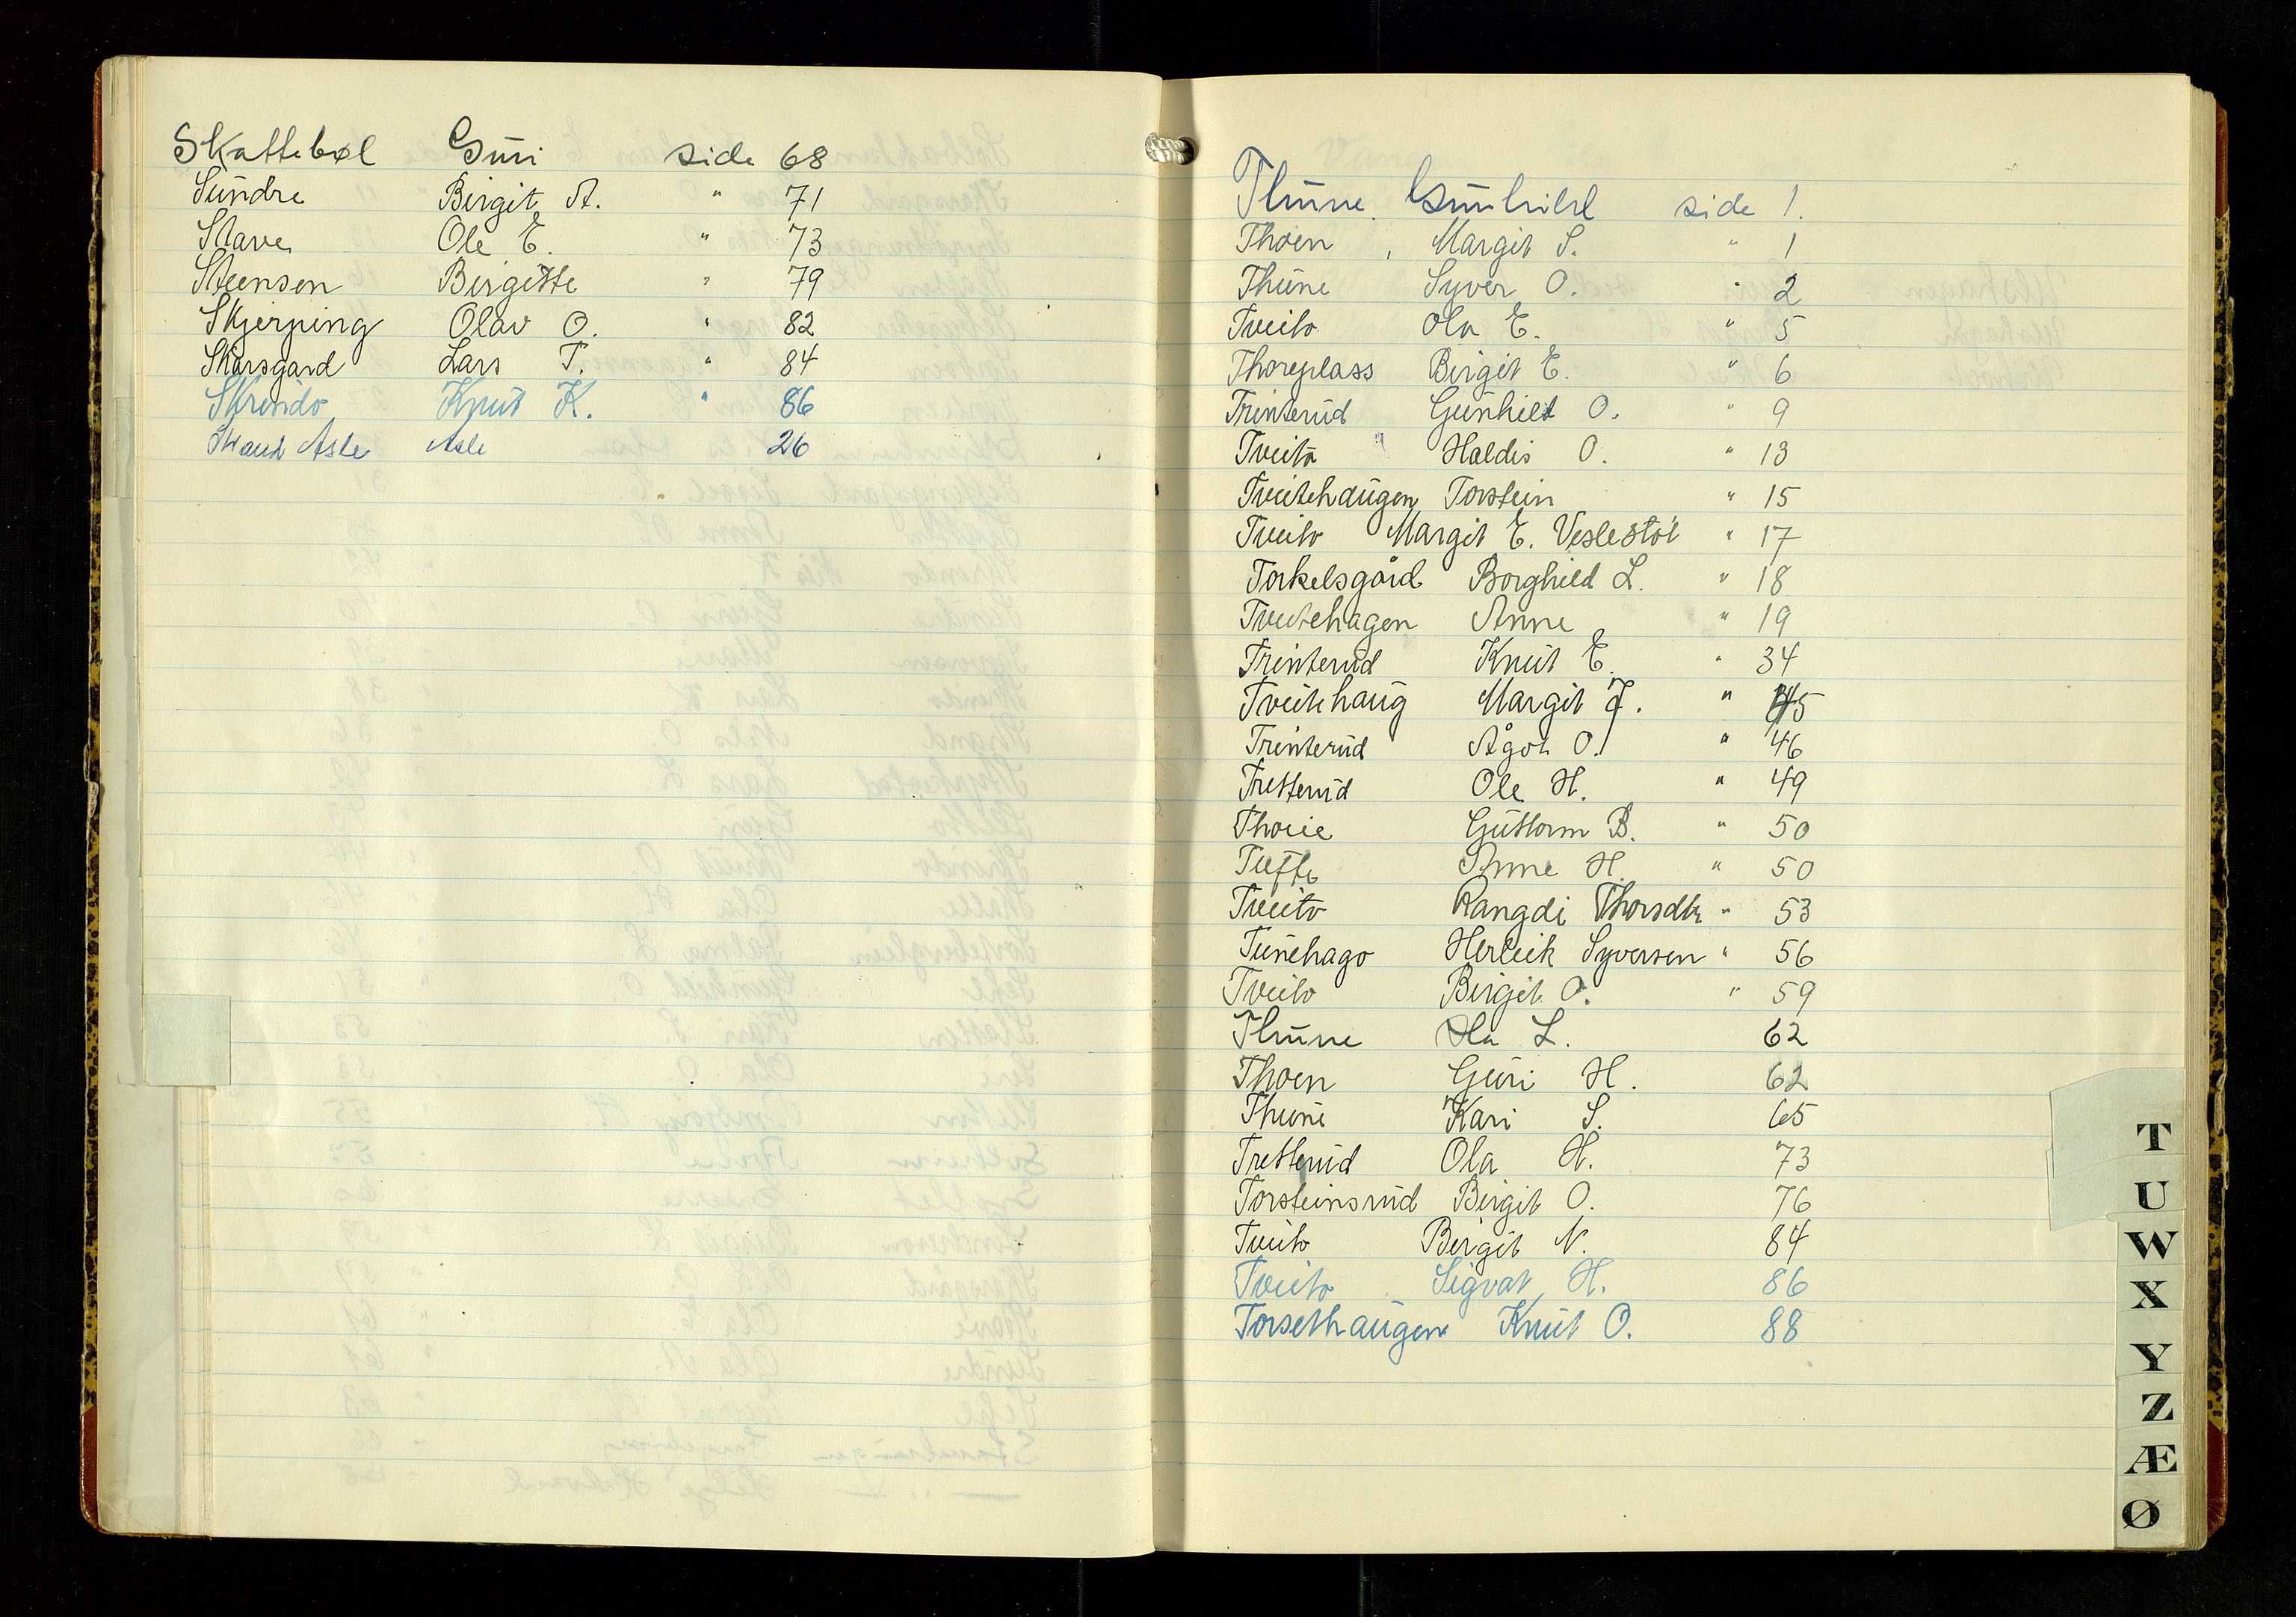 Skattebøl Guri side 68
Sundre Birgit A. " 71
Stave Ole E. " 73
Steensen Birgitte " 79
Skjerping Olav O. " 82
Skarsgard Lars T. " 84
Skrindo Knut K. " 86
Strand Asle Asle 26
Thune Gunhild side 1.
Thoen, Margit S. " 1
Thune Syver O. " 2
Tveito Ola E. " 5
Thoreplass Birgit E. " 6
Trinterud Gunhild O. " 9
Tveito " Haldis O. " 13
Tveitehaugen Torstein " 15
Tveito Margit E. Veslestöl " 17
Torkelsgård Borghild L. " 18
Tveitehagen Anne " 19
Trinterud Knut E. " 34
Tveitehaug Margit T. " 45
Trinterud Ågot O. " 46
Tretterud Ole H. " 49
Thorie Guttorm B. " 50
Tufte Anne H. " 50
Tveito Rangdi Thorsdtr " 53
Tunehago Herleik Syversen " 56
Tveito Birgit O. " 59
Thune Ola L. 62
Thoen Guri H. 62
Thune Kari S. 65
Tretterud Ola H. 73
Torsteinsrud Birgit O. 76
Tveito Birgit N. 84
Tveito Sigvat H. 86
Torsethaugen Knut O. 88
T
U
W
X
Y
Z
Æ
Ø